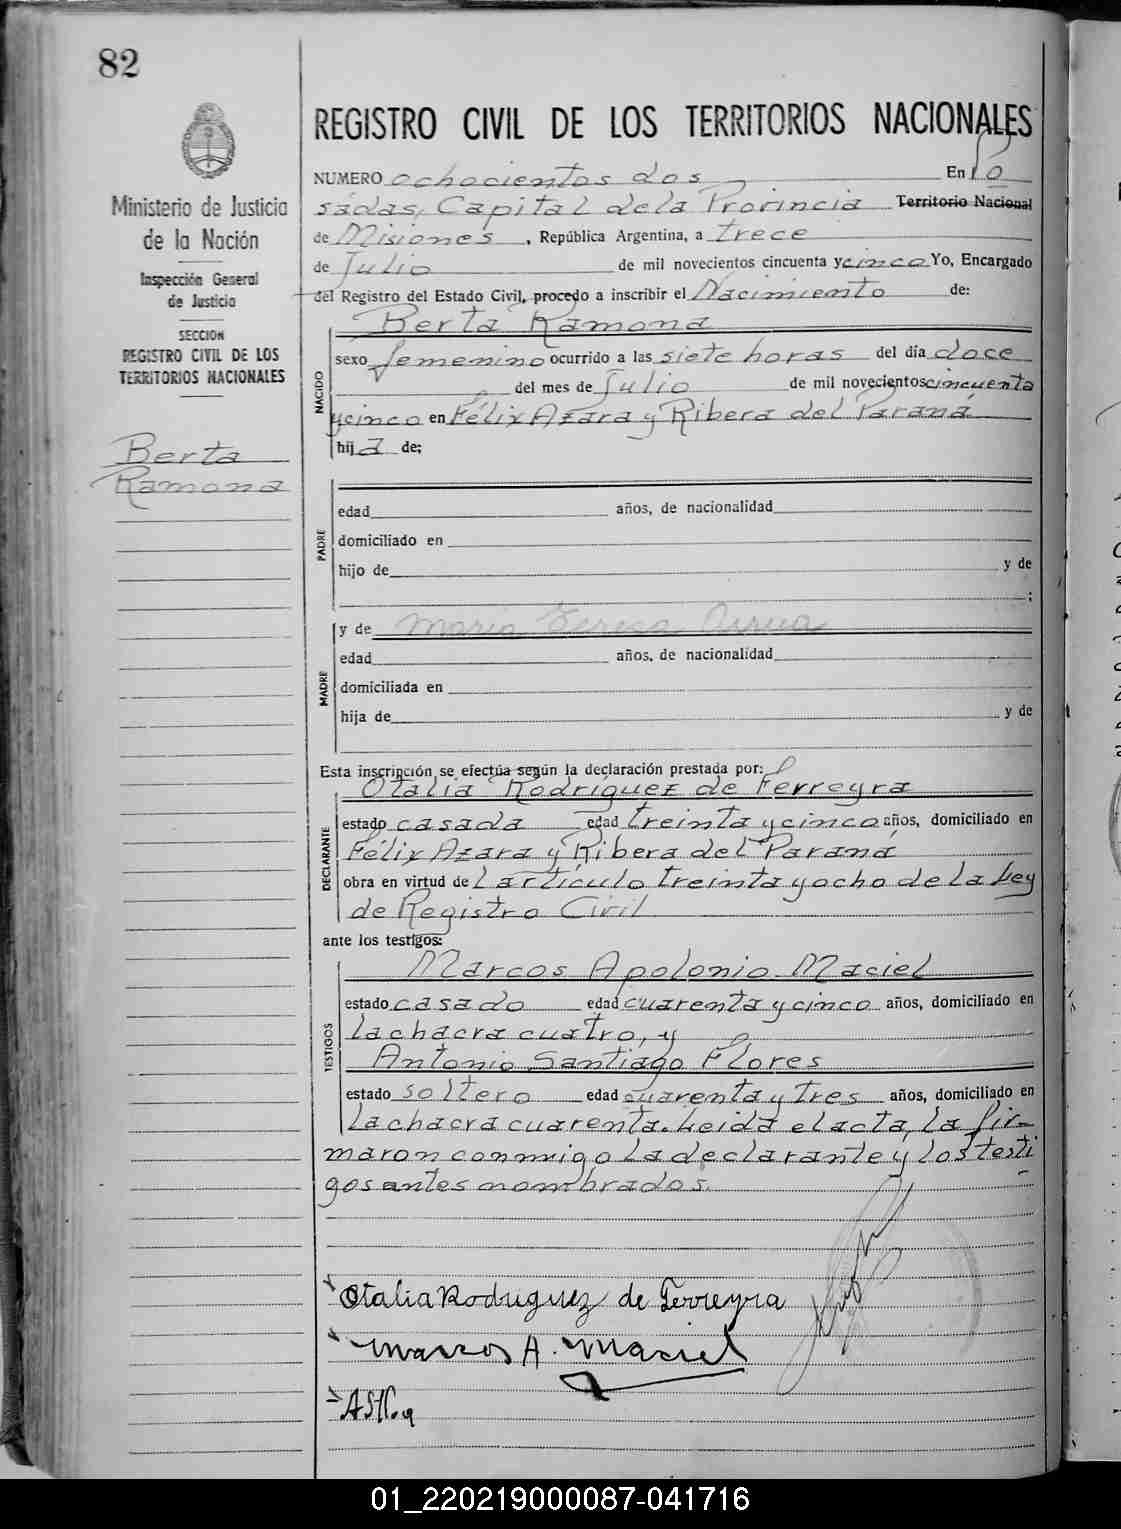 82
REGISTRO CIVIL DE LOS TERRITORIOS NACIONALES
Ministerio de Justicia
de la Nación
Inspección General
de Justicia
SECCION
REGISTRO CIVIL DE LOS
TERRITORIOS NACIONALES
Berta
Ramona
NUMERO ochocientos dos En Po
sadas, Capital de la Provincia Territorio Nacional
de Misiones, República Argentina, a trece
de Julio de mil novecientos cincuenta y cinco Yo, Encargado
del Registro del Estado Civil, procedo a inscribir el Nacimiento de:
NACIDO
Berta Ramona
sexo femenino ocurrido a las siete horas del día doce
del mes de Julio de mil novecientos cincuenta
y cinco en Félix Azara y Ribera del Paraná
hija de:
PADRE
edad años, de nacionalidad
domiciliado en
hijo de y de
;
MADRE
y de Maria Teresa Arrua
edad años, de nacionalidad
domiciliada en
hija de y de
Esta inscripción se efectúa según la declaración prestada por:
DECLARANTE
Otalia Rodríguez de Ferreyra
estado casada edad treinta y cinco años, domiciliado en
Félix Azara y Ribera del Paraná
obra en virtud del artículo treinta y ocho de la Ley
de Registro Civil
ante los testigos:
TESTIGOS
Marcos Apolonio Maciel
estado casado edad cuarenta y cinco años, domiciliado en
la chacra cuatro, y
Antonio Santiago Flores
estado soltero edad cuarenta y tres años, domiciliado en
la chacra cuarenta. Leida el acta, la fir-
maron conmigo la declarante y los testi
gos antes nombrados.
Otalia Rodriguez de Ferreyra
Marcos A. Maciel
01_220219000087-041716